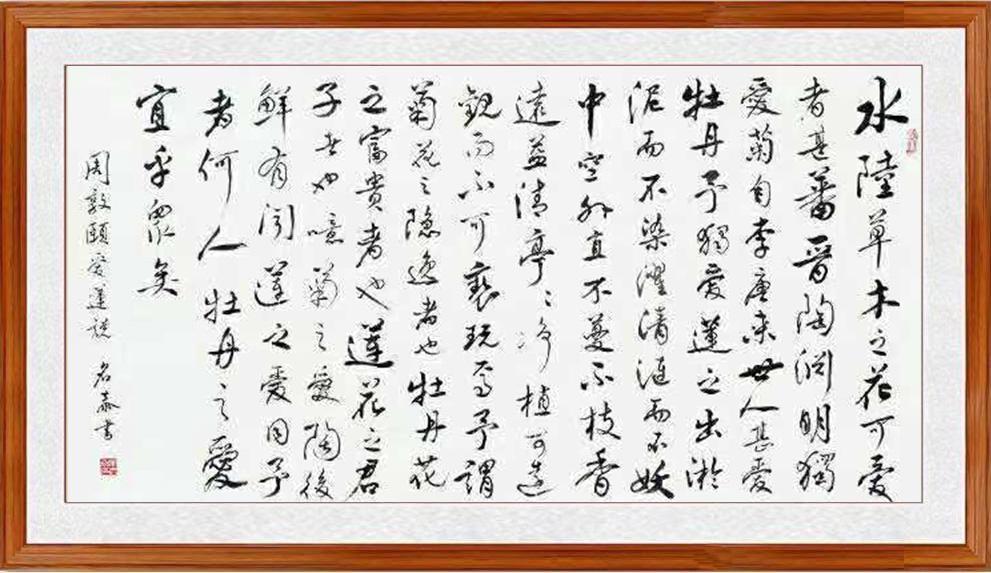 水陸草木之花可愛
者甚蕃晉陶渊明獨
愛菊自李唐来世人甚愛
牡丹予獨愛蓮之出淤
泥而不染濯清涟而不妖
中空外直不蔓不枝香
遠益清亭〻净植可遠
觀而不可褻玩焉予謂
菊花之隐逸者也牡丹花
之富貴者也蓮花之君
子者也噫菊之愛陶後
鮮有闻蓮之爱同予
者何人牡丹之愛
宜乎衆矣
周敦頤愛蓮説 名 書